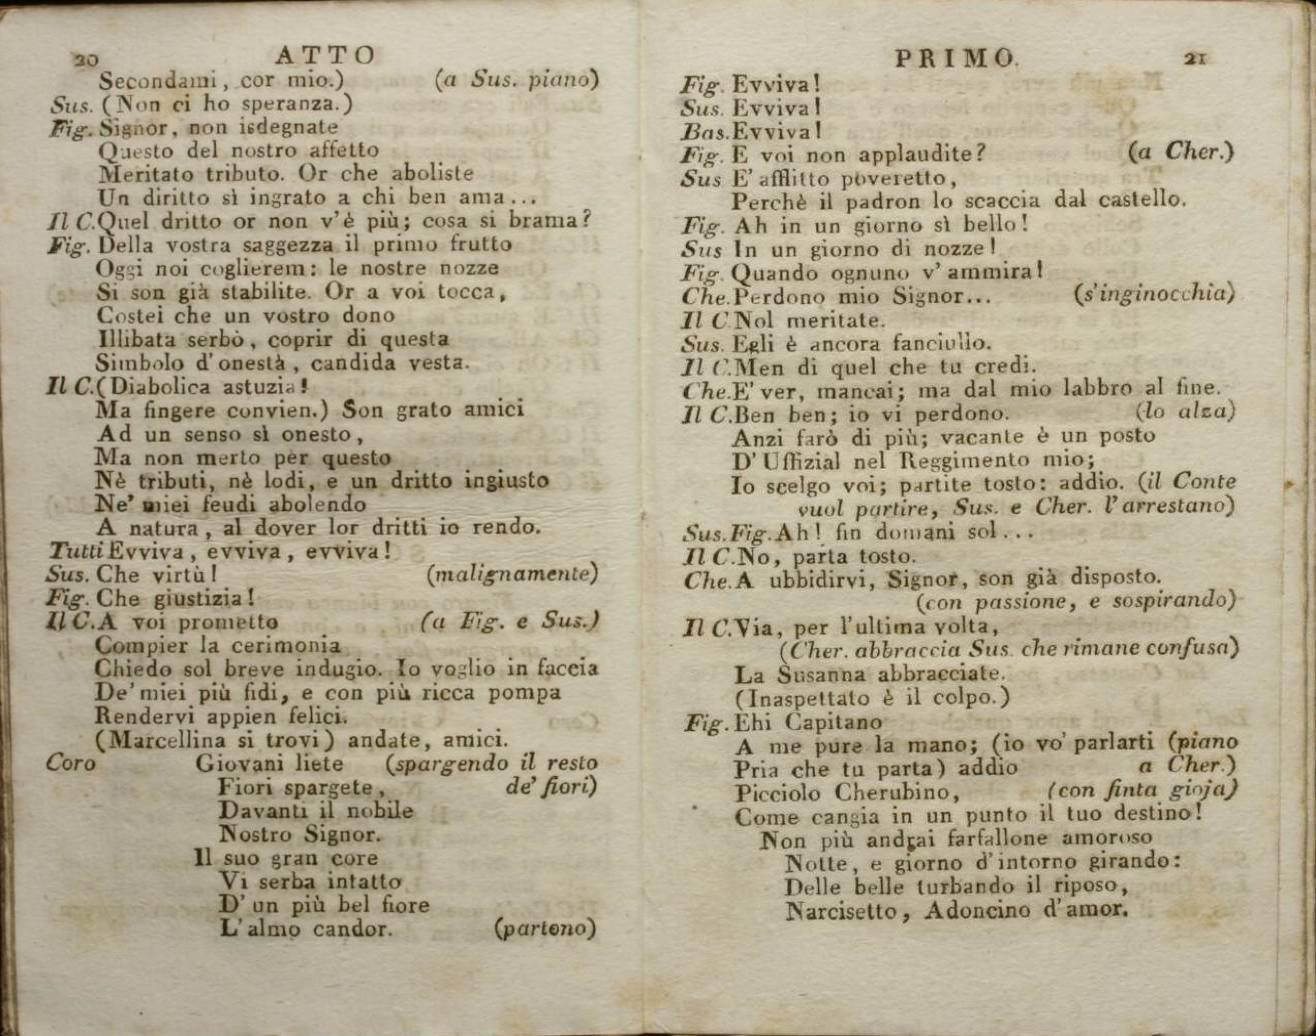 20 ATTO
Secondami, cor mio.) (a Sus. piano)
Sus. (Non ci ho speranza.)
Fig. Signor, non isdegnate
Questo del nostro affetto
Meritato tributo. Or che aboliste
Un diritto sì ingrato a chi ben ama...
Il C. Quel dritto or non v'è più; cosa si brama?
Fig. Della vostra saggezza il primo frutto
Oggi noi coglierem: le nostre nozze
Si son già stabilite. Or a voi tocca,
Costei che un vostro dono
Illibata serbò, coprir di questa
Simbolo d'onestà, candida vesta.
Il C. (Diabolica astuzia!
Ma fingere convien.) Son grato amici
Ad un senso sì onesto,
Ma non merto per questo
Nè tributi, nè lodi, e un dritto ingiusto
Ne' miei feudi abolendo
A natura, al dover lor dritti io rendo.
Tutti Evviva, evviva, evviva!
Sus. Che virtù! (malignamente)
Fig. Che giustizia!
Il C. A voi prometto (a Fig. e Sus.)
Compier la cerimonia
Chiedo sol breve indugio. Io voglio in faccia
De' miei più fidi, e con più ricca pompa
Rendervi appien felici.
(Marcellina si trovi) andate, amici.
Coro Giovani liete (spargendo il resto
Fiori spargete, de' fiori)
Davanti il nobile
Nostro Signor.
Il suo gran core
Vi serba intatto
D' un più bel fiore
L'almo candor. (partono)
PRIMO. 21
Fig. Evviva!
Sus. Evviva!
Bas. Evviva!
Fig. E voi non applaudite? (a Cher.)
Sus E' afflitto poveretto,
Perchè il padron lo scaccia dal castello.
Fig. Ah in un giorno sì bello!
Sus In un giorno di nozze!
Fig. Quando ognuno v' ammira!
Che. Perdono mio Signor... (s'inginocchia)
Il C Nol meritate.
Sus. Egli è ancora fanciullo.
Il C. Men di quel che tu credi.
Che. E' ver, mancai; ma dal mio labbro al fine.
Il C. Ben ben; io vi perdono. (lo alza)
Anzi farò di più; vacante è un posto
D' Uffizial nel Reggimento mio;
Io scelgo voi; partite tosto: addio. (il Conte
vuol partire, Sus. e Cher. l'arrestano)
Sus. Fig. Ah! fin domani sol...
Il C. No, parta tosto.
Che. A ubbidirvi, Signor, son già disposto.
(con passione, e sospirando)
Il C. Via, per l'ultima volta,
(Cher. abbraccia Sus. che rimane confusa)
La Susanna abbracciate.
(Inaspettato è il colpo.)
Fig. Ehi Capitano
A me pure la mano; (io vo' parlarti (piano
Pria che tu parta) addio a Cher.)
Picciolo Cherubino, (con finta gioja)
Come cangia in un punto il tuo destino!
Non più andrai farfallone amoroso
Notte, e giorno d'intorno girando:
Delle belle turbando il riposo,
Narcisetto, Adoncino d'amor.